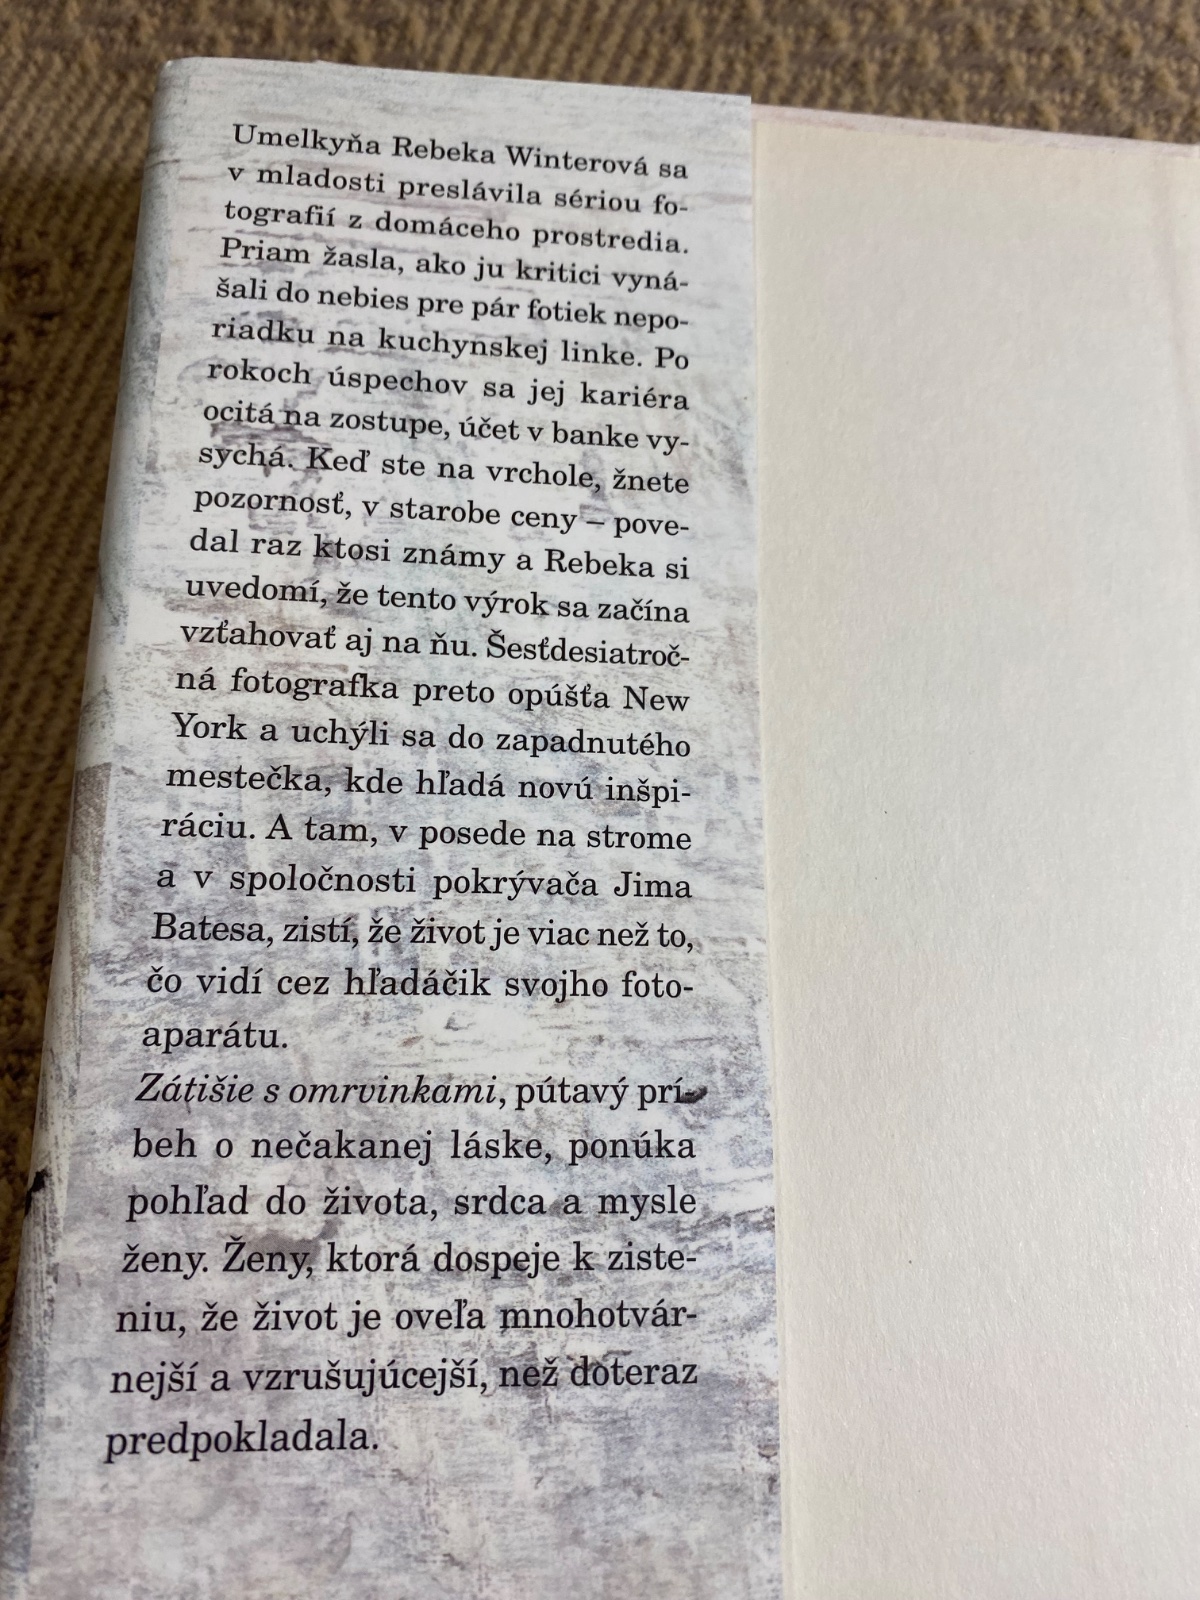 Umelkyňa Rebeka Winterová sa
v mladosti preslávila sériou fo-
tografií z domáceho prostredia.
Priam žasla, ako ju kritici vyná-
šali do nebies pre pár fotiek nepo-
riadku na kuchynskej linke. Po
rokoch úspechov sa jej kariéra
ocitá na zostupe, účet v banke vy-
sychá. Keď ste na vrchole, žnete
pozornosť, v starobe ceny – pove-
dal raz ktosi známy a Rebeka si
uvedomí, že tento výrok sa začína
vzťahovať aj na ňu. Šesťdesiatroč-
ná fotografka preto opúšťa New
York a uchýli sa do zapadnutého
mestečka, kde hľadá novú inšpi-
ráciu. A tam, v posede na strome
a v spoločnosti pokrývača Jima
Batesa, zistí, že život je viac než to,
čo vidí cez hľadáčik svojho foto-
aparátu.
Zátišie s omrvinkami, pútavý prí-
beh o nečakanej láske, ponúka
pohľad do života, srdca a mysle
ženy. Ženy, ktorá dospeje k ziste-
niu, že život je oveľa mnohotvár-
nejší a vzrušujúcejší, než doteraz
predpokladala.